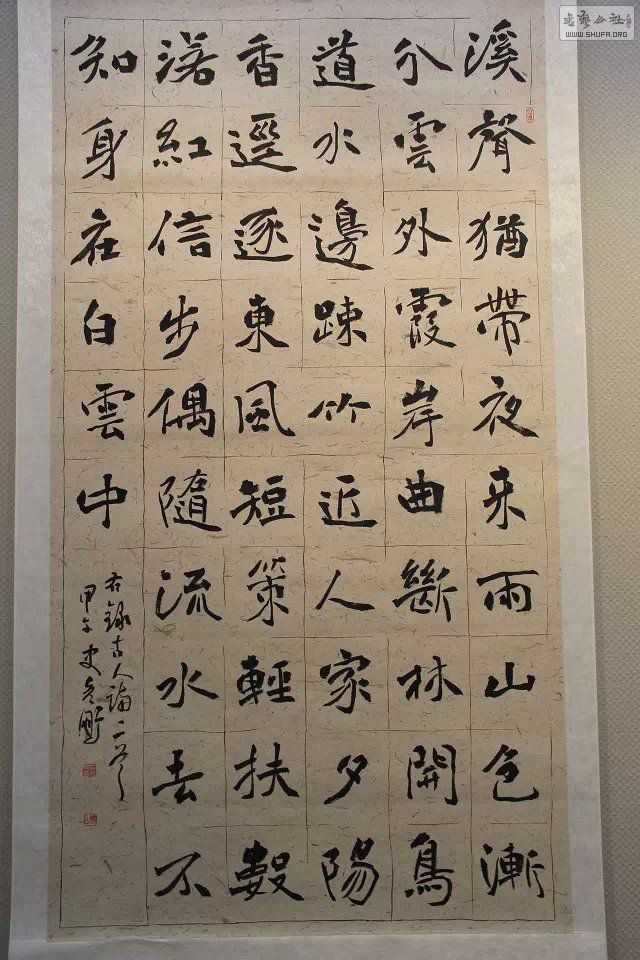 溪聲猶帶夜来雨山色漸
分雲外霞岸曲斷林開鳥
道水邊踈竹近人家夕陽
香逕逐東風短策輕扶數
落紅信步偶隨流水去不
知身在白雲中
右錄古人詩二首
甲午史
書藝公社
WWW.SHUFA.ORG